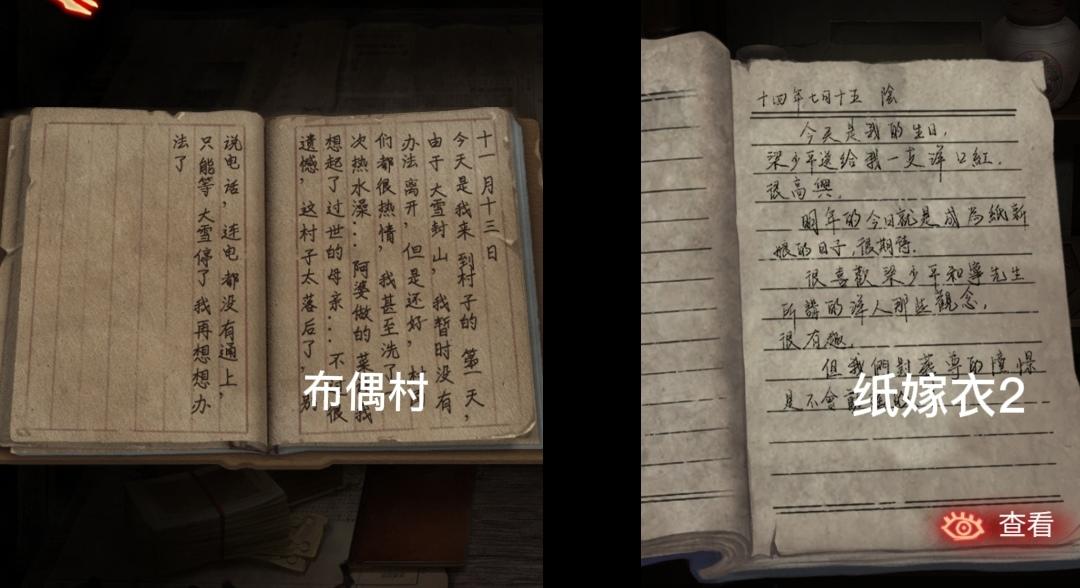 十一月十三日
今天是我来到村子的第一天，
由于大雪封山，我暂时没有
办法离开，但是还好，村
们都很热情，我甚至洗了
次热水澡：阿婆做的菜 我
想起了过世的母亲…不 很
遗憾，这村子太落后了， 别
说电话，连电都没有通上，
只能等大雪停了我再想想办
法了
布偶村
十四年七月十五 陰
今天是我的生日，
梁少平送給我一支洋口紅，
很高興。
明年的今日就是成為紙新
娘的日子，很期待。
很喜歡梁少平和寧先生
所講的洋人那些觀念，
很有趣。
但我們對葬尊的憧憬
是不會
纸嫁衣2
查看